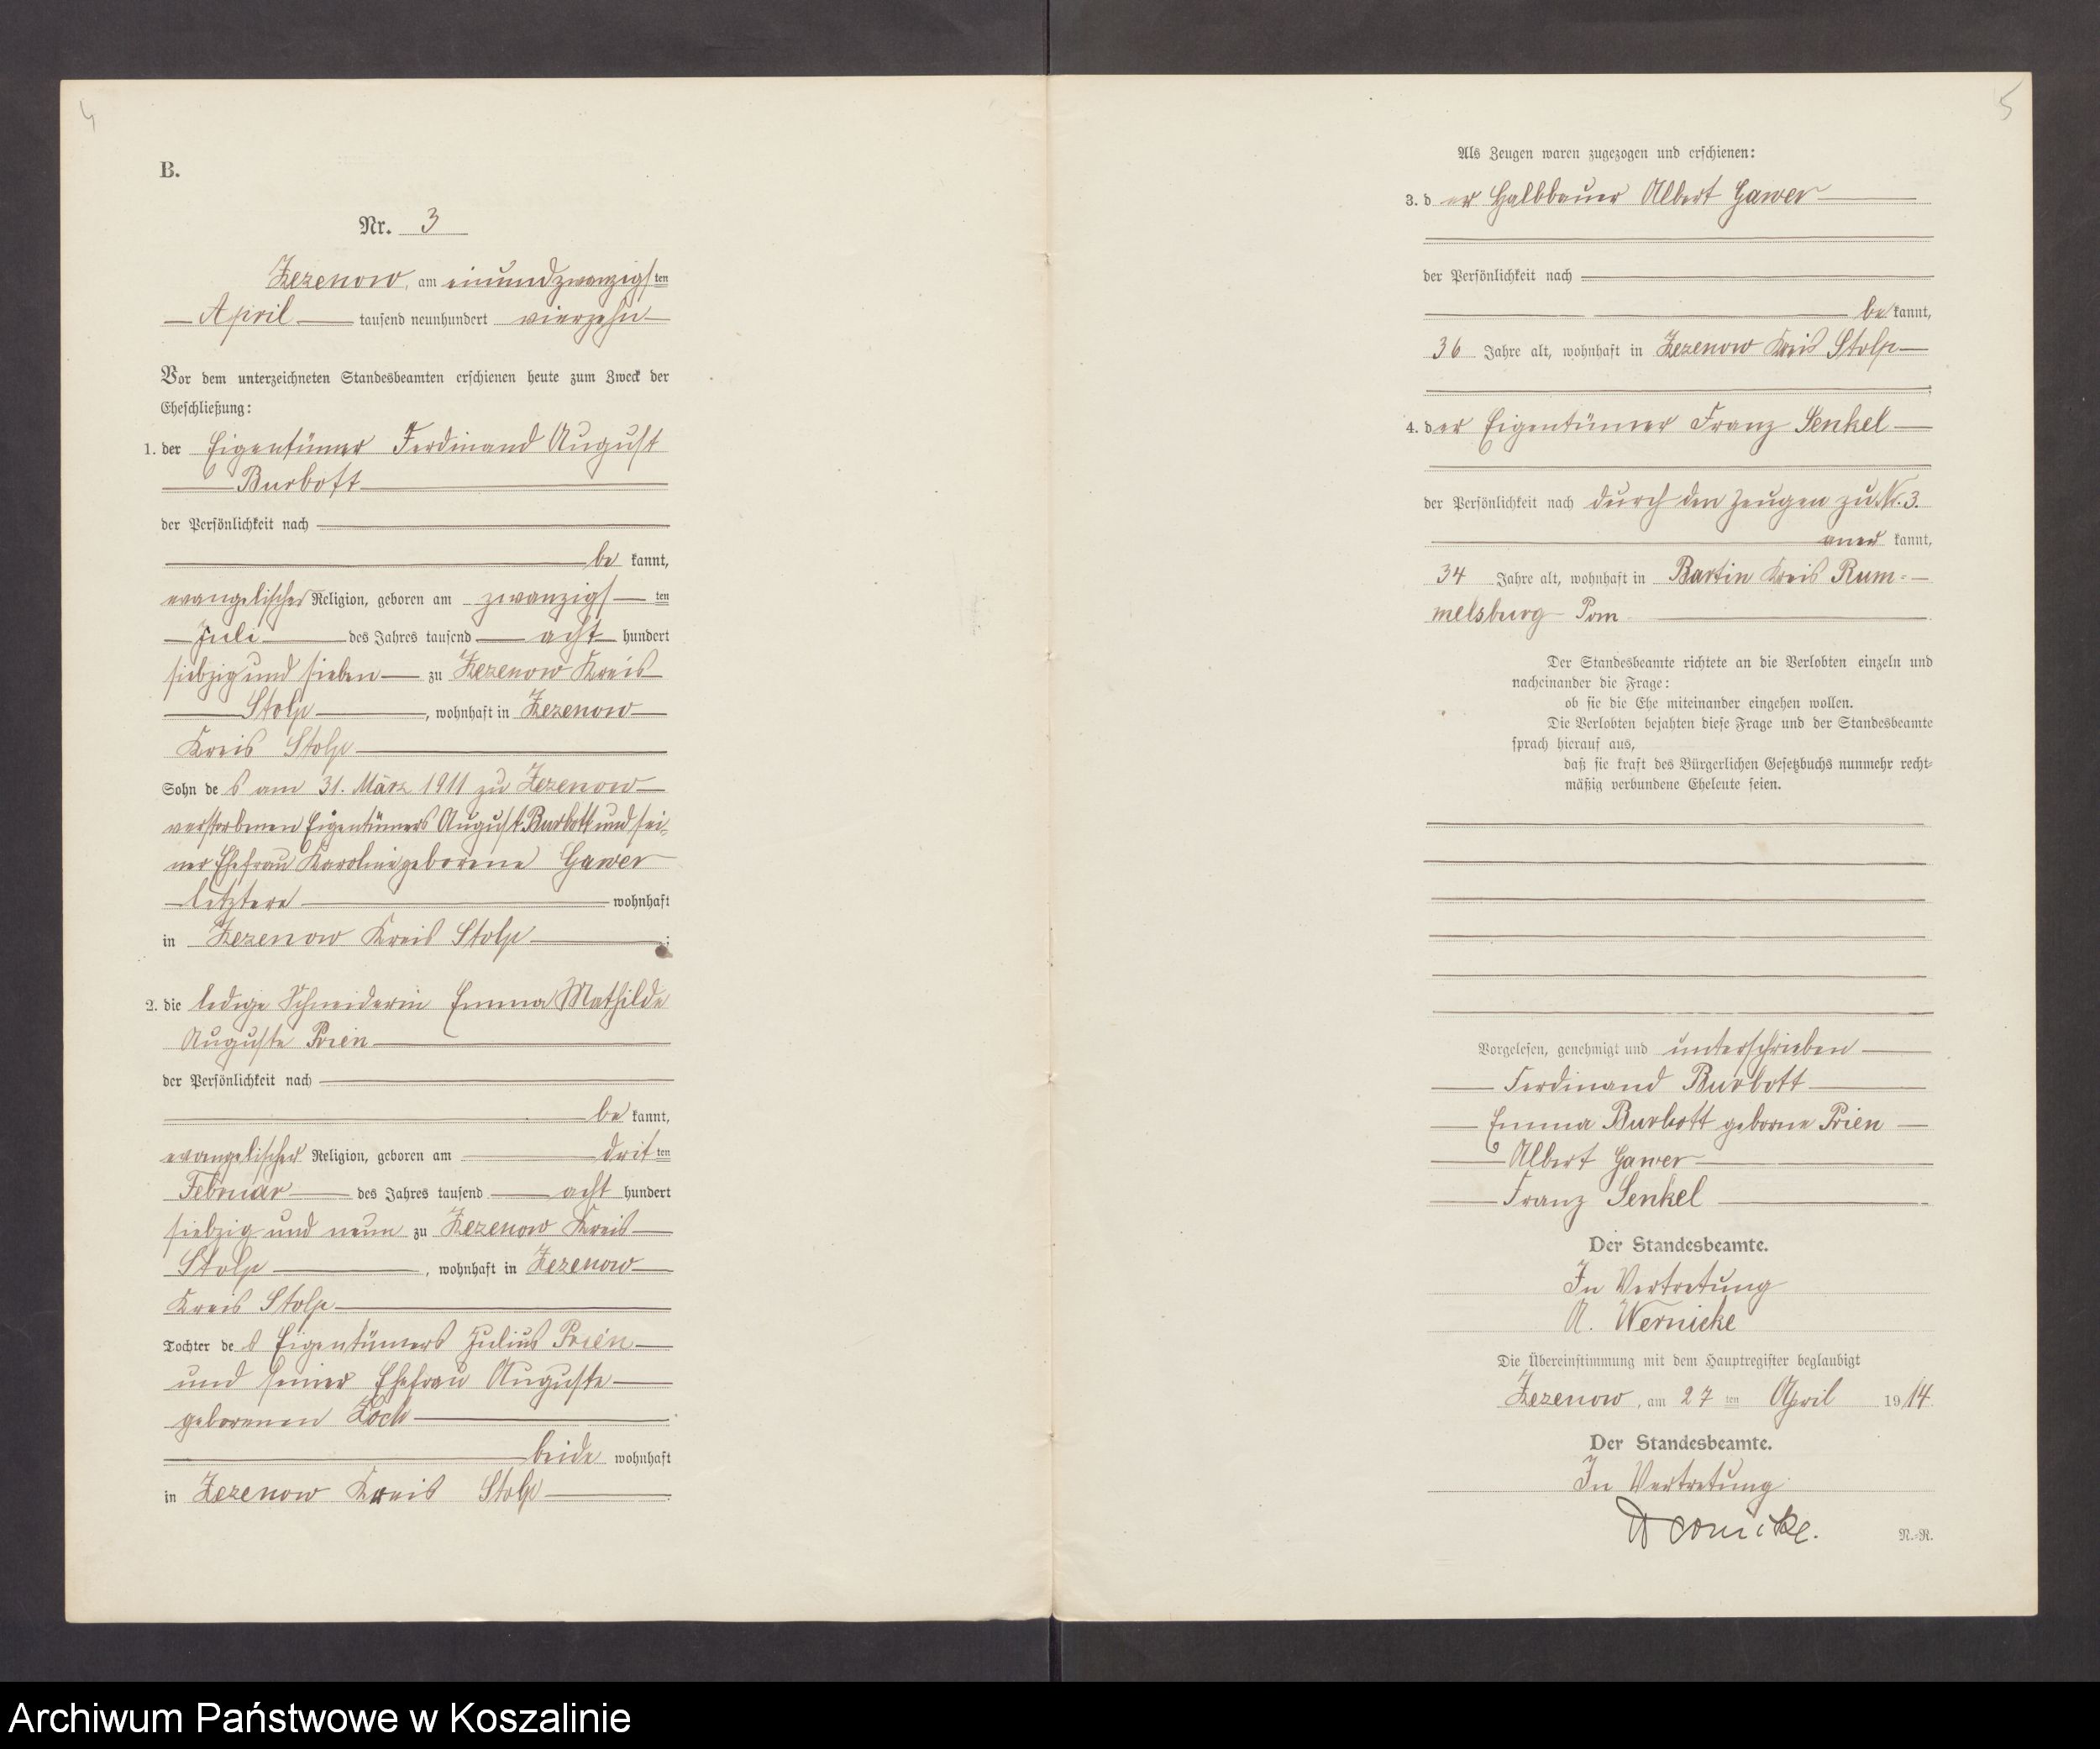 4
B.
Nr. 3
Zezenow, am einundzwanzigsten
April tausend neunhundert vierzehn
Vor dem unterzeichneten Standesbeamten erschienen heute zum Zweck der
Eheschließung:
1. der Eigentümer Ferdinand August
Burbott
der Persönlichkeit nach
be kannt,
evangelischer Religion, geboren am zwanzigsten
Juli des Jahres tausend acht hundert
siebzig und sieben zu Zezenow Kreis
Stolp, wohnhaft in Zezenow
Kreis Stolp
Sohn des am 31. März 1911 zu Zezenow
verstorbenen Eigentümers August Burbott und sei-
ner Ehefrau Karoline geborene Gawer
letztere wohnhaft
in Zezenow Kreis Stolp;
2. die ledige Schneiderin Emma Mathilde
Auguste Prien
der Persönlichkeit nach
be kannt,
evangelischer Religion, geboren am dritten
Februar des Jahres tausend acht hundert
siebzig und neun zu Zezenow Kreis
Stolp, wohnhaft in Zezenow
Kreis Stolp
Tochter des Eigentümers Julius Prien
und seiner Ehefrau Auguste
geborenen
beide wohnhaft
in Zezenow Kreis Stolp.
5
Als Zeugen waren zugezogen und erschienen:
3. der Halbbauer Albert Gawer
der Persönlichkeit nach
be kannt,
36 Jahre alt, wohnhaft in Zezenow Kreis Stolp
;
4. der Eigentümer Franz Senkel
der Persönlichkeit nach durch den Zeugen zu Nr. 3.
aner kannt,
34 Jahre alt, wohnhaft in Bartin Kreis Rum-
melsburg Pom.
Der Standesbeamte richtete an die Verlobten einzeln und
nacheinander die Frage:
ob sie die Ehe miteinander eingehen wollen.
Die Verlobten bejahten diese Frage und der Standesbeamte
sprach hierauf aus,
daß sie kraft des Bürgerlichen Gesetzbuchs nunmehr recht-
mäßig verbundene Eheleute seien.
Vorgelesen, genehmigt und unterschrieben
Ferdinand Burbott
Emma Burbott geborne Prien
Albert Gawer
Franz Senkel
Der Standesbeamte.
In Vertretung
A. Wernicke
Die Übereinstimmung mit dem Hauptregister beglaubigt
Zezenow, am 27 ten April 1914.
Der Standesbeamte.
In Vertretung
Wernicke.
N.-R.
Archiwum Państwowe w Koszalinie